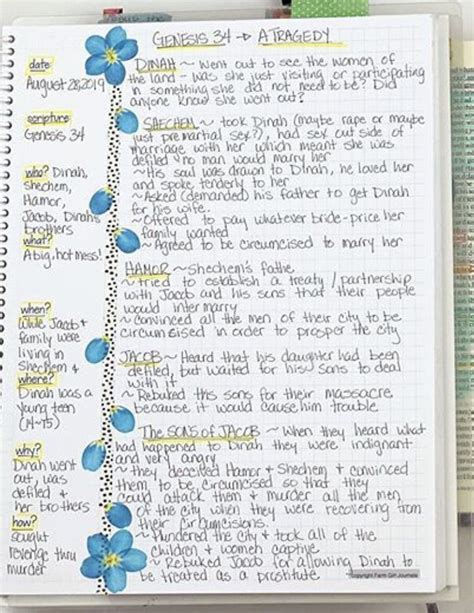 GENESIS 34 → A TRAGEDY
date:
August 28, 2019
scripture:
Genesis 34
who? Dinah,
Shechem,
Hamor,
Jacob, Dinah's
brothers
what?
A big, hot mess!
when?
While Jacob &
family were
living in
Shechem &
where?
Dinah was a
young teen
(14-15)
why?
Dinah went
out, was
defiled &
her brothers
how?
sought
revenge thru
murder
DINAH ~ Went out to see the women of
the land - was she just visiting or participating
in something she did not need to be? Did
anyone know she went out?
SAECHEM ~ took Dinah (maybe rape or maybe
just premarital sex?), had sex out side of
marriage with her which meant she was
defiled no man would marry her
~ His soul was drawn to Dinah, he loved her
and spoke tenderly to her
~ Asked (demanded) his father to get Dinah
for his wife.
~ Offered to pay whatever bride-price her
family wanted
~ Agreed to be circumcised to marry her
HAMOR ~ Shechem's fathe
~ tried to establish a treaty / partnership
with Jacob and his sons that their people
would inter marry
~ convinced all the men of their city to be
circumcised in order to prosper the city
JACOB ~ Heard that his daughter had been
defiled, but waited for his sons to deal
with it
~ Rebuked this sons for their massacre
because it would cause him trouble
THE SONS OF JACOB ~ When they heard what
had happened to Dinah they were indignant
and very angry
~ they deceived Hamor & Shechem & convinced
them to be circumcised so that they
could attack them & murder all the men
of the city when they were recovering from
their circumcisions.
~ Plundered the city & took all of the
children & women captive
~ Rebuked Jacob for allowing Dinah to
be treated as a prostitute
copyright Farm Girl Journals